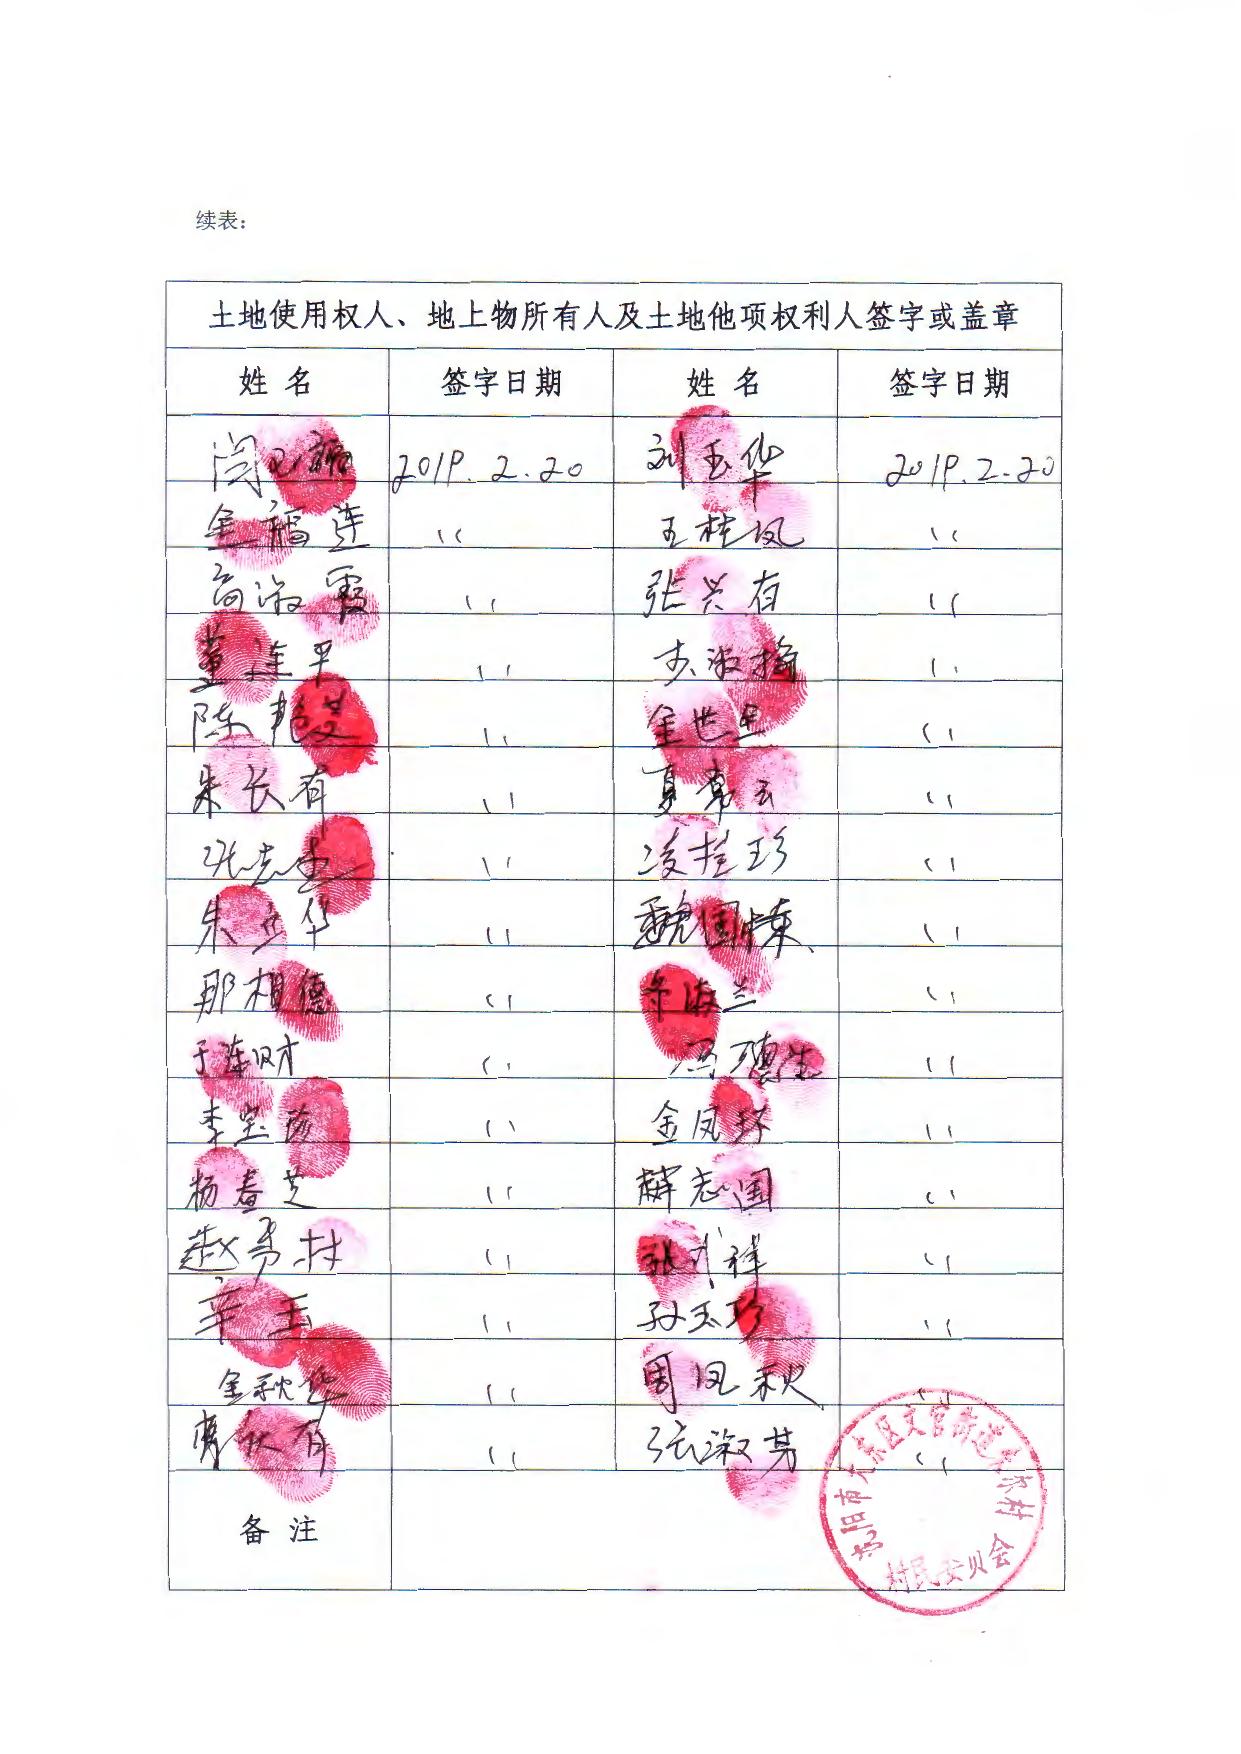 续表：
土地使用权人、地上物所有人及土地他项权利人签字或盖章
姓 名 签字日期 姓 名 签字日期
2019.2.20 刘玉华 2019.2.20
金福连 〃 王桂凤 〃
高淑霞 〃 张兴存 〃
董连平 〃 淑 〃
陈艳芝 〃 金世 〃
朱长有 〃 夏常云 〃
张志 〃 凌桂珍 〃
朱立华 〃 魏国栋 〃
那相德 〃 海兰 〃
于连财 〃 冯德生 〃
李宝 〃 金凤环 〃
杨春芝 〃 志国 〃
赵秀村 〃 张祥 〃
辛玉 〃 孙玉珍 〃
金秋华 〃 周凤秋 〃
有 〃 张淑芳 〃
备 注
沈阳市大东区文官街道 村
村民委员会